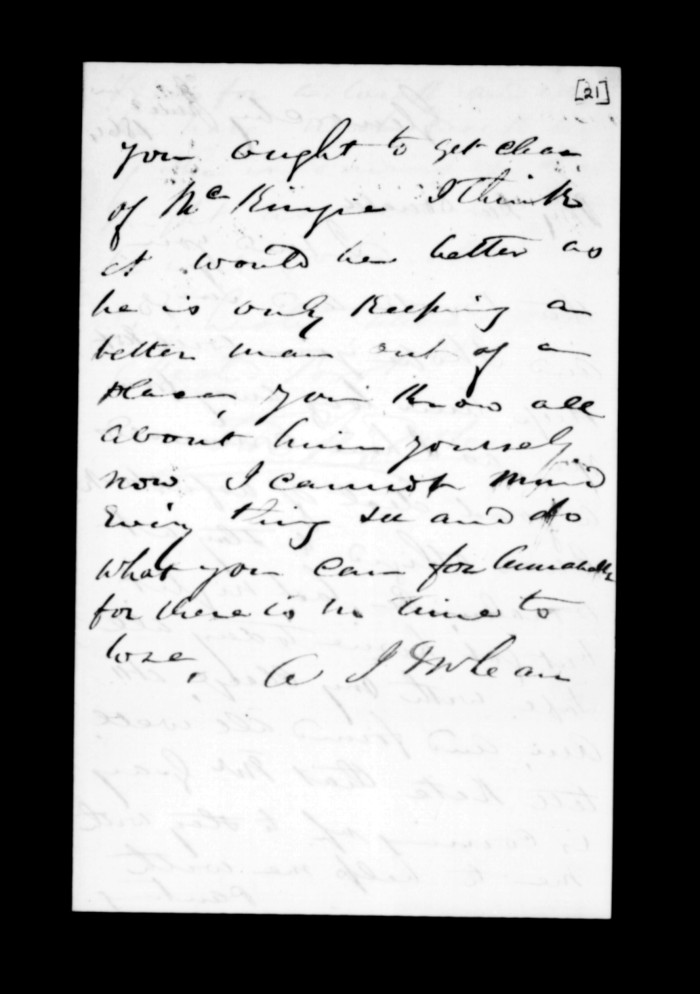 [21]
you ought to get clear
of McKinzie I think
it would be better as
he is only keeping a
better man out of a
place, you know all
about him yourself
now I cannot mind
every thing see and do
what you can for Annabella
for there is no time to
lose, A J McLean